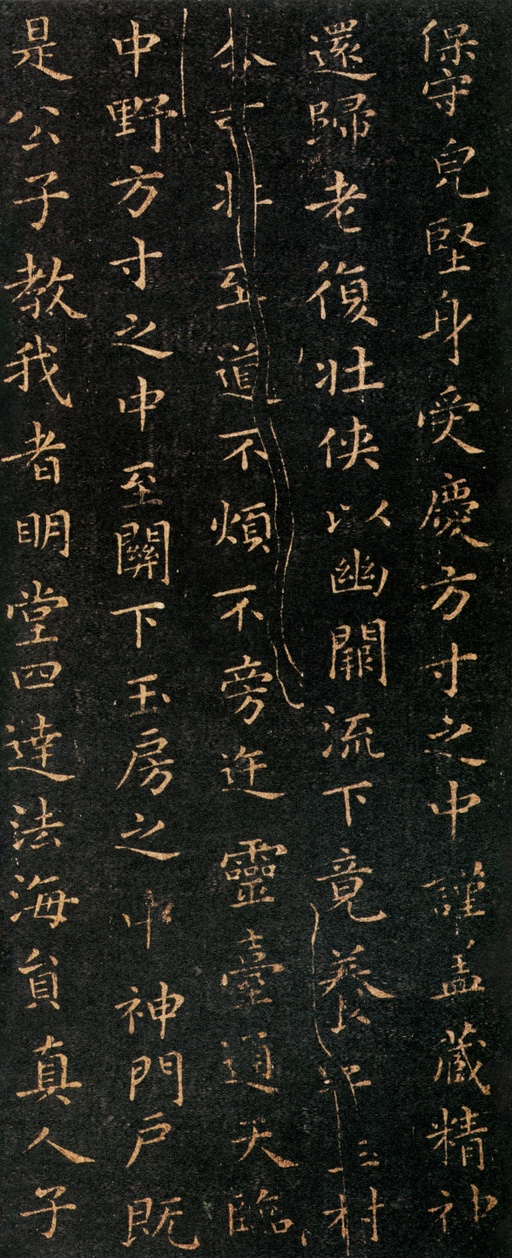 保守皃堅身受慶方寸之中謹盖藏精神
還歸老復壯俠以幽闕流下竟養
至道不煩不旁迕靈臺通天臨
中野方寸之中至關下玉房之中神門戶既
是公子教我者明堂四達法海員真人子